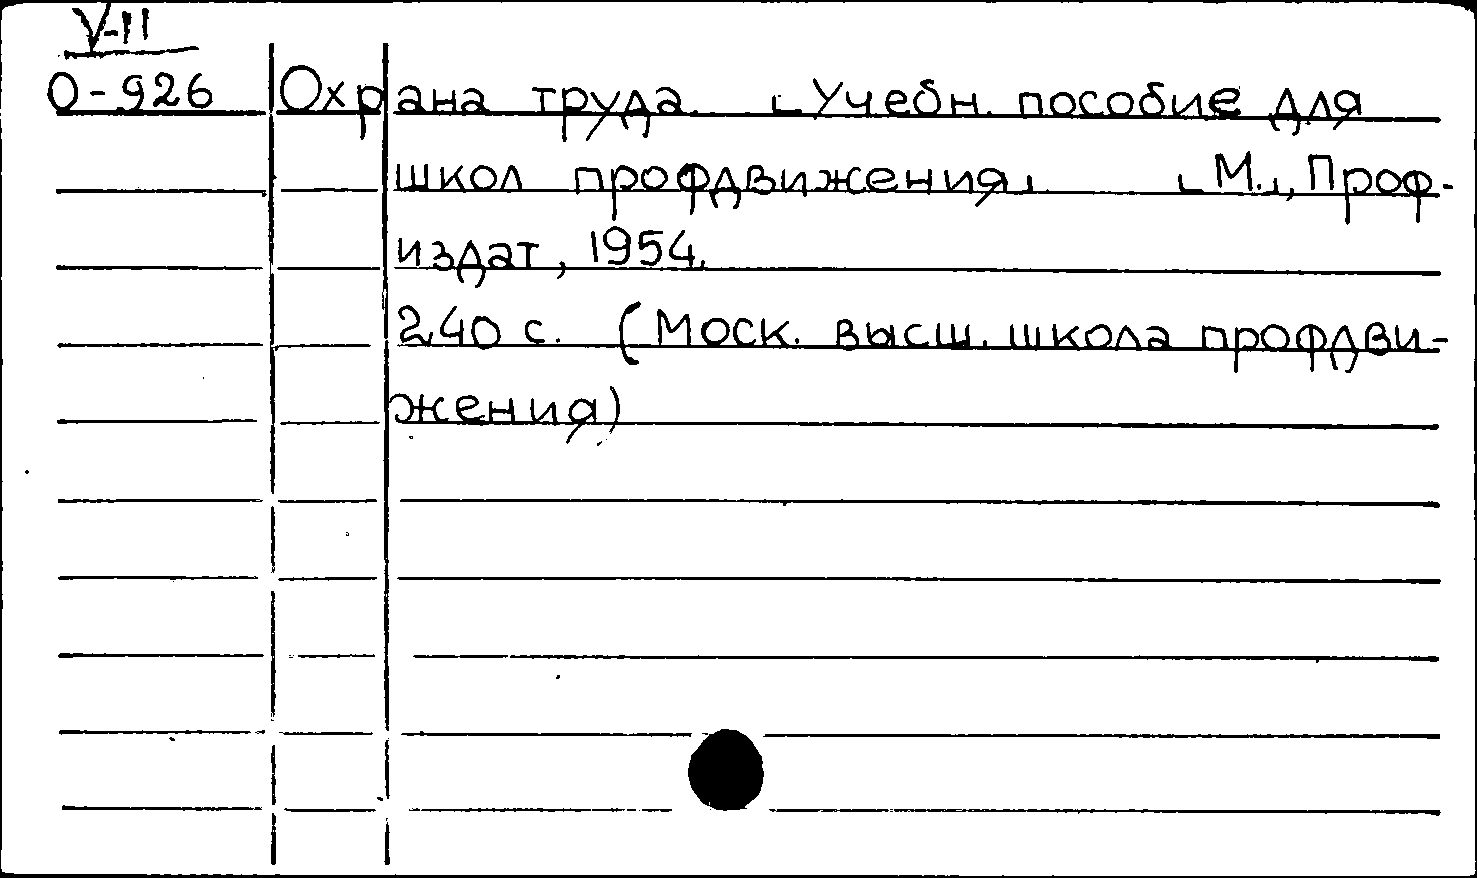 V-11
О-926
Охрана труда. Учебн. пособие для
школ профдвижения. М., Проф-
издат, 1954.
240 с. (Моск. высш. школа профдви-
жения)